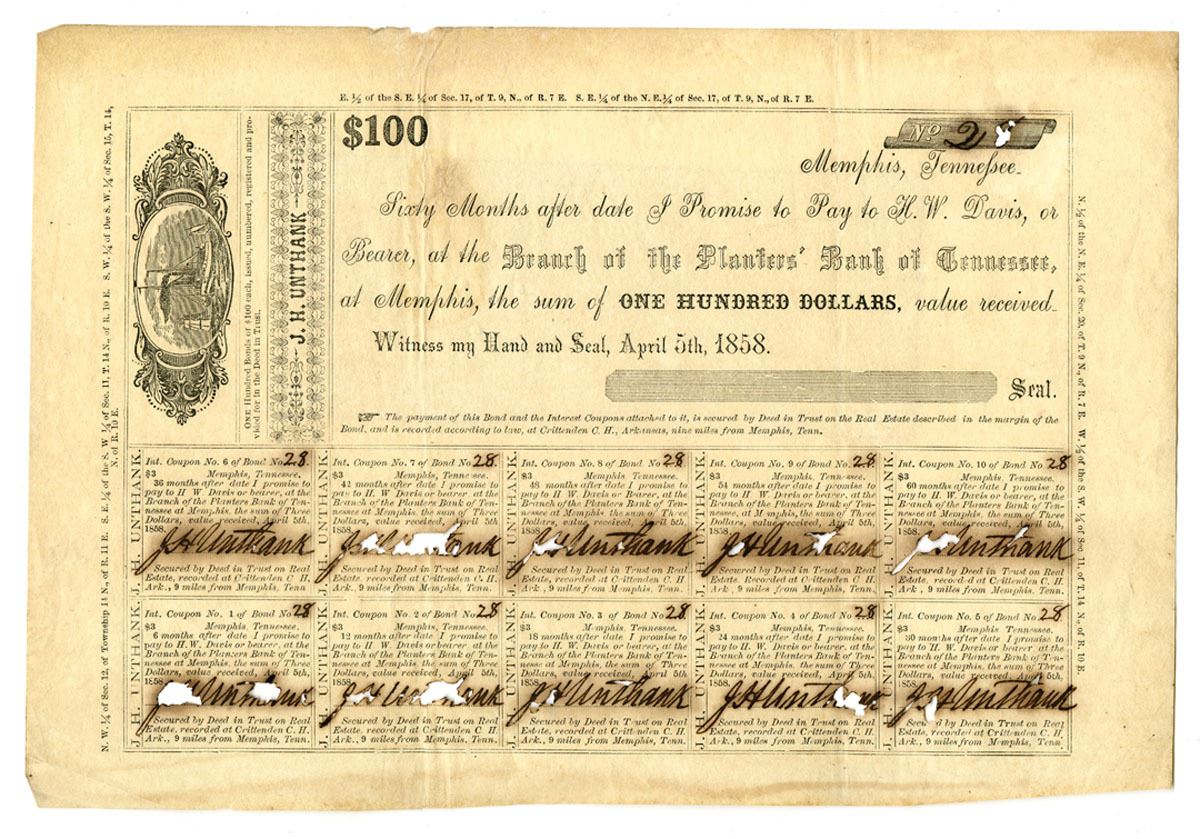 E. ½ of the S. E. ¼ of Sec. 17, of T. 9, N., of R. 7 E. S. E. ¼ of the N. E. ¼ of Sec. 17, of T. 9, N., of R. 7 E.
N. W. ¼ of Sec. 12, of Township 14 N., of R. 11 E. S. E. ¼ of the S. W ¼ of Sec. 11, T. 14 N., of R. 10 E. S. W. ¼ of the S. W. ¼ of Sec. 15, T. 14,
N. of R. 10 E.
ONE Hundred Bonds of $100 each, issued, numbered, registered and pro-
vided for in the Deed in Trust.
J. H. UNTHANK
$100
No 2
Memphis, Tennessee.
Sixty Months after date I Promise to Pay to H. W. Davis, or
Bearer, at the Branch of the Planters' Bank of Tennessee,
at Memphis, the sum of ONE HUNDRED DOLLARS, value received.
Witness my Hand and Seal, April 5th, 1858.
Seal.
The payment of this Bond and the Interest Coupons attached to it, is secured by Deed in Trust on the Real Estate described in the margin of the
Bond, and is recorded according to law, at Crittenden C. H., Arkansas, nine miles from Memphis, Tenn.
N. ½ of the N. E. ¼ of Sec. 20, of T. 9 N., of R. 7 E. W. ½ of the S. W. ¼ of Sec. 11, of T. 14 N., of R. 10 E.
J. H. UNTHANK.
Int. Coupon No. 6 of Bond No. 28
$3 Memphis, Tennessee.
36 months after date I promise to
pay to H. W. Davis or bearer, at the
Branch of the Planters Bank of Ten-
nessee at Memphis, the sum of Three
Dollars, value received, April 5th,
1858.
J H Unthank
Secured by Deed in Trust on Real
Estate, recorded at Crittenden C. H.
Ark., 9 miles from Memphis, Tenn.
J. H. UNTHANK.
Int. Coupon No. 7 of Bond No. 28
$3 Memphis, Tennessee.
42 months after date I promise to
pay to H. W. Davis or bearer, at the
Branch of the Planters Bank of Ten-
nessee at Memphis, the sum of Three
Dollars, value received, April 5th,
1858.
Secured by Deed in Trust on Real
Estate, recorded at Crittenden C. H.,
Ark., 9 miles from Memphis, Tenn.
J. H. UNTHANK.
Int. Coupon No. 8 of Bond No 28
$3 Memphis, Tennessee.
48 months after date I promise to
pay to H. W. Davis or Bearer, at the
Branch of the Planters Bank of Ten-
nessee at Memphis, the sum of Three
Dollars, value received, April 5th,
1858.
J H Unthank
Secured by Deed in Trust on Real
Estate, recorded at Crittenden C. H.
Ark., 9 miles from Memphis, Tenn.
J. H. UNTHANK.
Int. Coupon No. 9 of Bond No. 28
$3 Memphis, Tennessee.
54 months after date I promise to
pay to H. W. Davis or bearer, at the
Branch of the Planters Bank of Ten-
nessee, at Memphis, the sum of Three
Dollars, value received, April 5th,
1858.
J H Unthank
Secured by Deed in Trust on Real
Estate. Recorded at Crittenden C. H.
Ark., 9 miles from Memphis, Tenn.
J. H. UNTHANK.
Int. Coupon No. 10 of Bond No 28
$3 Memphis, Tennessee.
60 months after date I promise to
pay to H. W. Davis or bearer, at the
Branch of the Planters Bank of Ten-
nessee at Memphis, the sum of Three
Dollars, value received, April 5th,
1858.
Unthank
Secured by Deed in Trust on Real
Estate, recorded at Crittenden C. H.
Ark., 9 miles from Memphis, Tenn.
J. H. UNTHANK.
Int. Coupon No. 1 of Bond No 28
$3 Memphis, Tennessee.
6 months after date I promise to
pay to H. W. Davis or bearer, at the
Branch of the Planters Bank of Ten-
nessee at Memphis, the sum of Three
Dollars, value received, April 5th,
1858.
Secured by Deed in Trust on Real
Estate, recorded at Crittenden C. H.
Ark., 9 miles from Memphis, Tenn.
J. H. UNTHANK.
Int. Coupon No. 2 of Bond No. 28
$3 Memphis, Tennessee.
12 months after date I promise to
pay to H. W. Davis or bearer, at the
Branch of the Planters Bank of Ten-
nessee at Memphis, the sum of Three
Dollars, value received, April 5th,
1858.
Secured by Deed in Trust on Real
Estate, recorded at Crittenden C. H.
Ark., 9 miles from Memphis, Tenn.
J. H. UNTHANK.
Int. Coupon No. 3 of Bond No 28
$3 Memphis, Tennessee.
18 months after date I promise to
pay to H. W. Davis or bearer, at the
Branch of the Planters Bank of Ten-
nessee at Memphis, the sum of Three
Dollars, value received, April 5th,
1858.
J H Unthank
Secured by Deed in Trust on Real
Estate, recorded at Crittenden C. H.
Ark., 9 miles from Memphis, Tenn.
J. H. UNTHANK.
Int. Coupon No. 4 of Bond No 28
$3 Memphis, Tennessee.
24 months after date I promise to
pay to H. W. Davis or bearer, at the
Branch of the Planters Bank of Ten-
nessee at Memphis, the sum of Three
Dollars, value received, April 5th,
1858.
J H Unthank
Secured by Deed in Trust on Real
Estate, recorded at Crittenden C. H.
Ark., 9 miles from Memphis, Tenn.
J. H. UNTHANK.
Int. Coupon No. 5 of Bond No. 28
$3 Memphis, Tennessee.
30 months after date I promise to
pay to H. W. Davis or bearer, at the
Branch of the Planters Bank of Ten-
nessee at Memphis, the sum of Three
Dollars, value received, April 5th,
1858.
J H Unthank
Secured by Deed in Trust on Real
Estate, recorded at Crittenden C. H.
Ark., 9 miles from Memphis, Tenn